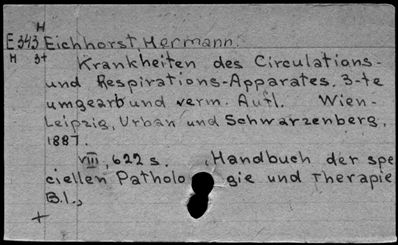 H
E343 Eichhorst, Hermann.
H 3t Krankheiten des Circulations-
und Respirations-Apparates. 3-te
umgearb und verm. Aufl. Wien-
Leipzig, Urban und Schwarzenberg,
1887.
VIII, 622 s. , Handbuch der spe
ciellen Patholo gie und Therapie
B.I.,
+